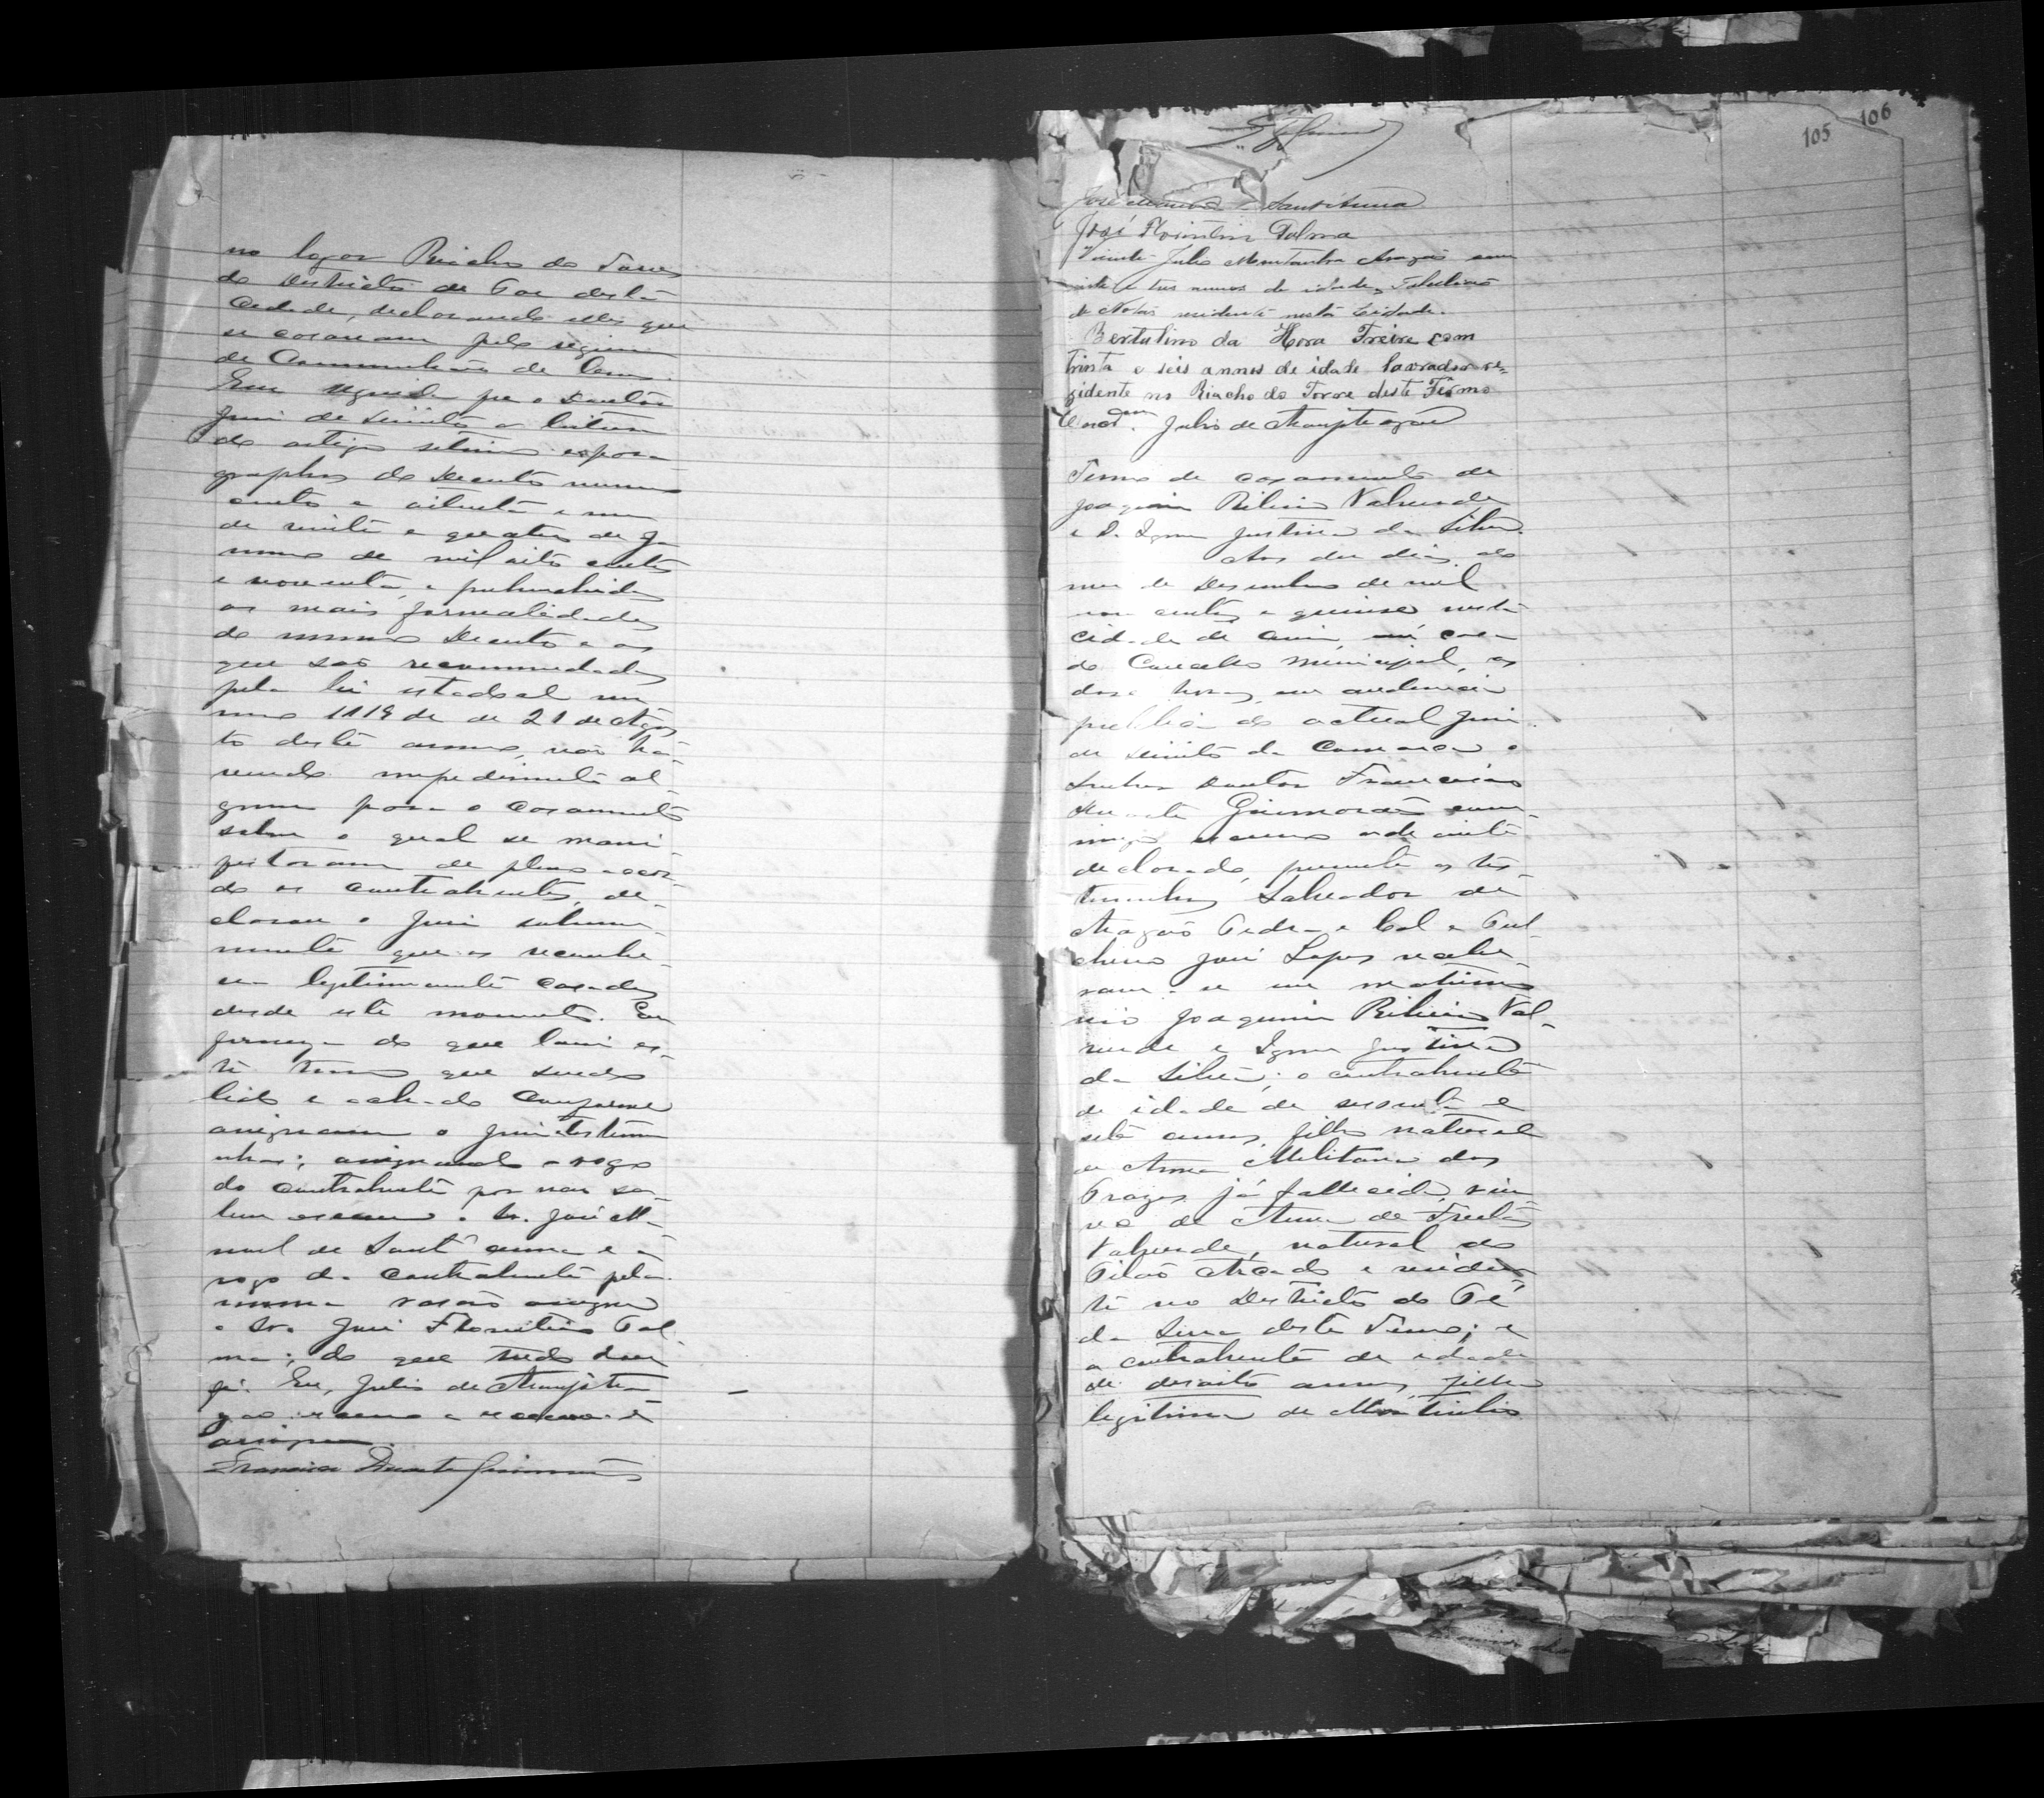 no logar Riacho da Torre
do Destricto de Paz desta
Cidade, declarando elles que
se casavam pelo regimen
de Communhão de bens.
Em seguida fez o Doutor
Juiz de Direito a leitura
do artigo setimo e para
graphos do Decreto numero
cento e oitenta e um
de vinte e quatro de Ja
neiro de mil oito centos
e noventa, e prehenchidas
as mais formalidades
do mesmo Decreto e as
que são recommendadas
pela lei estadoal nu
mero 1119 de de 21 de Agos
to deste anno, não ha
vendo impedimento al
gum para o casamento
sobre o qual se mani
festaram de pleno accor
do os contrahentes, de
clarou o Juiz solemne
mente que os reconhe
cia legitimamente casados
desde este momento. Em
firmeza do que lavrei es
te termo que sendo
lido e achado conforme
assignam o Juiz testemu
nhas; assignando a rogo
do contrahente por não sa
ber escrever o Sr. José Ma
noel de Sant'Anna e a
rogo da contrahente pela
mesma rasão assigna
o Sr. José Florentino Pal
ma; do que tudo dou
fé. Eu, Julio de
escrivão o escrevi e
assigno.
Francisco Duarte Guimarães
105 106
José Manoel de Sant'Anna
José Florentino Palma
Vicente Julio Aragão com
e tres annos de idade, Tabellião
de Notas residente nesta Cidade.
Bertulino da Hora Freire com
trinta e seis annos de idade lavrador re=
zidente no Riacho da Torre deste Termo
Julio de
Termo de casamento de
Joaquim Ribeiro Valverde
e D. Ignez Justina da Silva.
Aos dez dias do
mez de Dezembro de mil
nove centos e quinze nesta
cidade de em casa
do Conselho Municipal, as
doze horas, em audiencia
publica do actual Juiz
de Direito da Comarca o
Senhor Doutor Francisco
Duarte Guimarães com
migo escrivão adeante
declarado, presente as tes
temunhas Salvador de
Aragão Pedra e Cal e Pul
cherio José Lopes recebe
ram-se em matrimo
nio Joaquim Ribeiro Val
verde e Ignez Justina
da Silva; o contrahente
de idade de sessenta e
sete annos, filho natural
de Anna Militana dos
Prazes já fallecida, viu
vo de Anna de Freitas
Valverde, natural do
Pilão Arcado e residen
te no Destricto do Pé
da Serra deste Termo; e
a contrahente de idade
de desoito annos, filha
legitima de